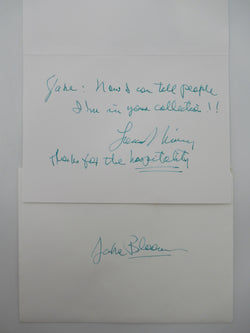 Jake: Now I can tell people
I'm in your collection!!
thanks for the hospitality
Jake Bloom